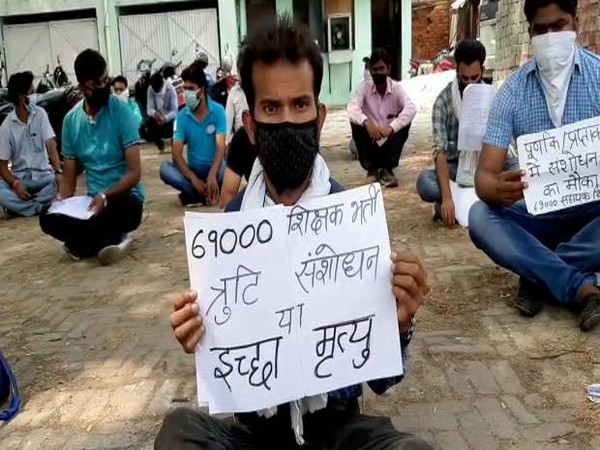 69000 शिक्षक भर्ती
त्रुटि संशोधन
या
इच्छा मृत्यु
पूर्णांक/प्राप्तांक
में संशोधन
का मौका
69000 सहायक